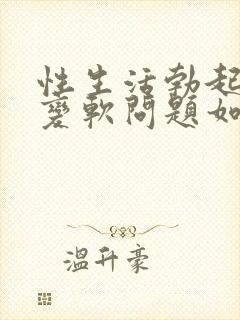 性生活勃起
变軟問題如
溫升豪